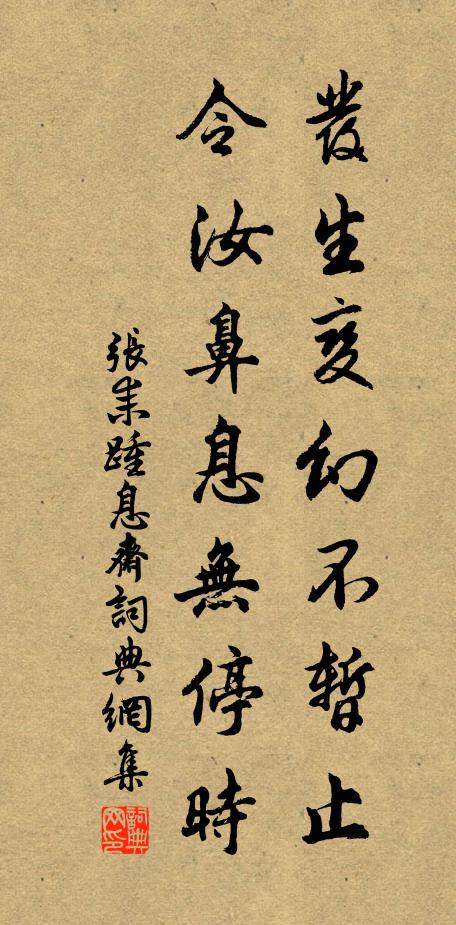 發生変幻不暫止
令汝鼻息無停時
張耒踵息齋詞典網集
詞典网印